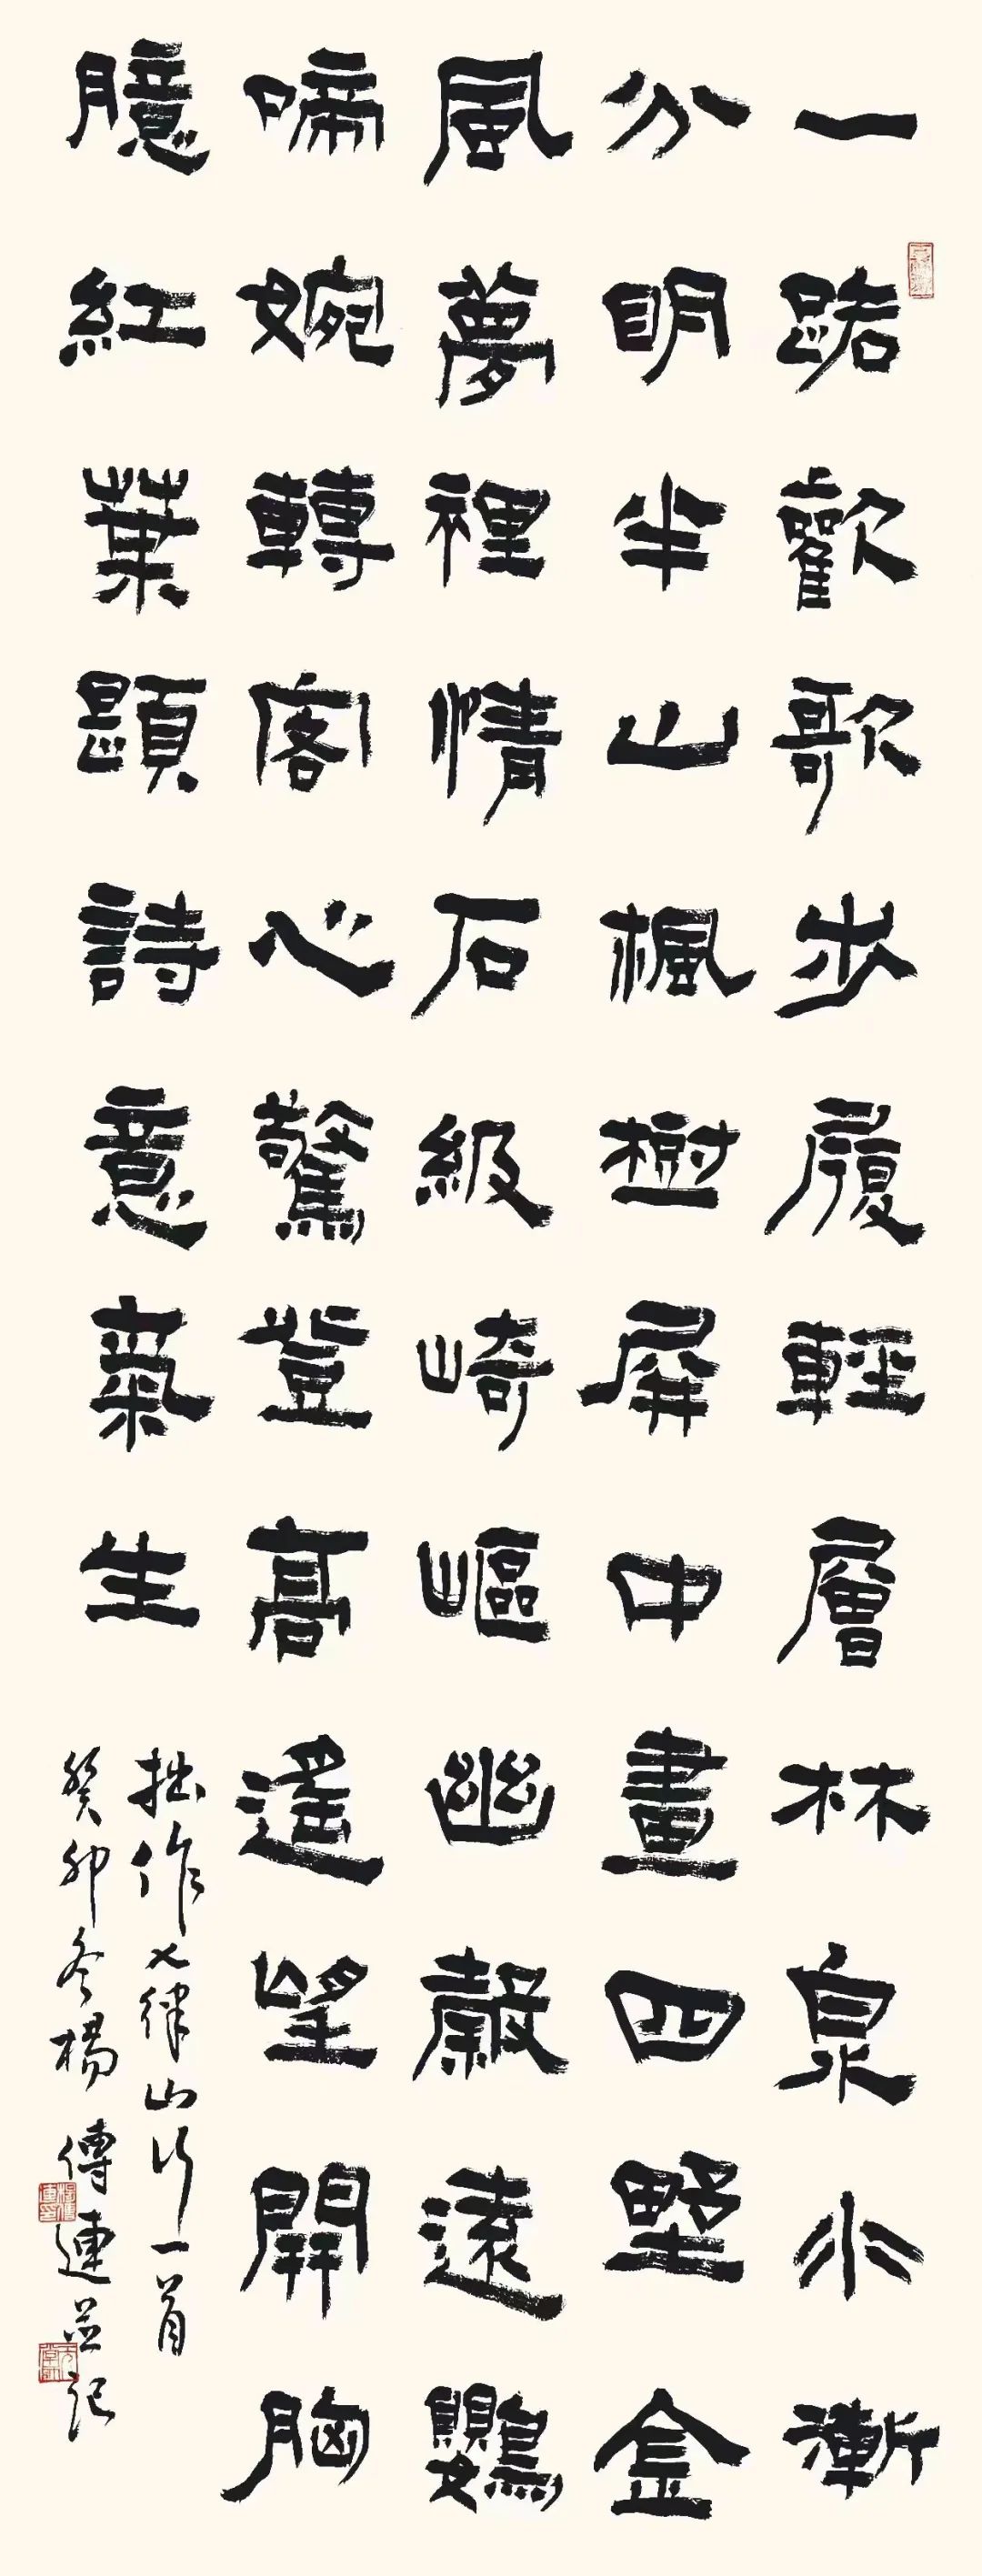 一路歡歌步履輕層林泉水漸
分明半山楓樹屏中畫四野金
風夢裡情石級崎嶇幽穀遠鸚
啼婉轉客心驚登高遙望開胸
臆紅葉題詩意氣生
拙作七律山行一首
癸卯冬楊傳連並記